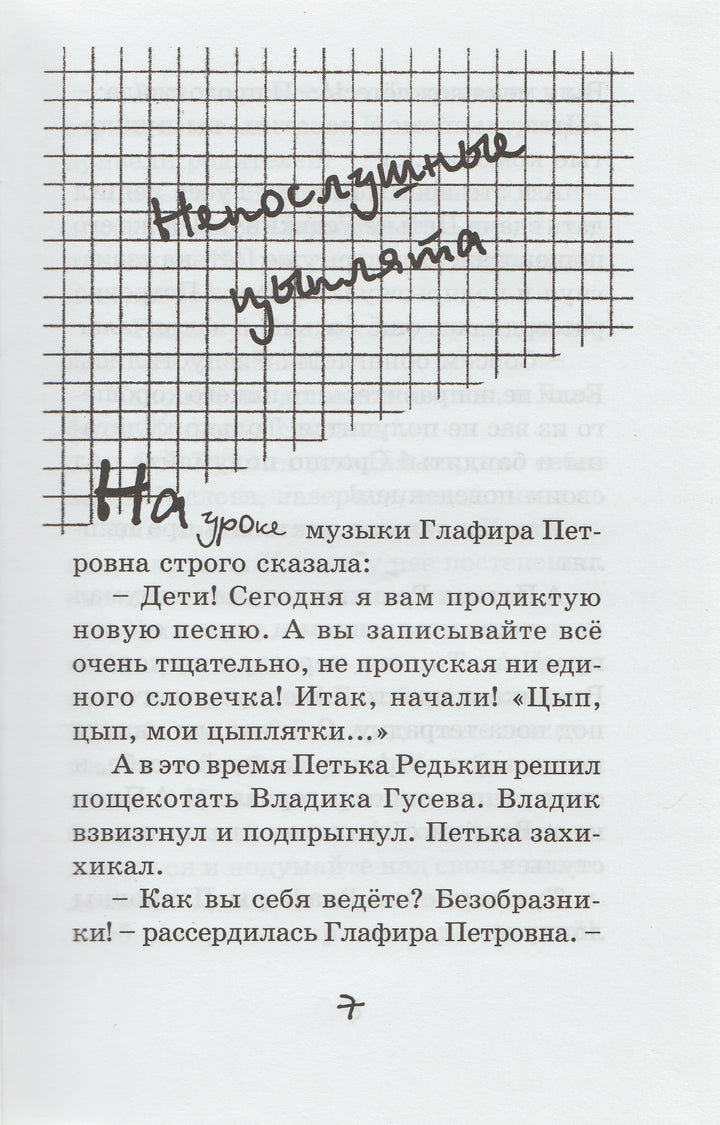 Непослушные
цыплята
На уроке музыки Глафира Пет-
ровна строго сказала:
– Дети! Сегодня я вам продиктую
новую песню. А вы записывайте всё
очень тщательно, не пропуская ни еди-
ного словечка! Итак, начали! «Цып,
цып, мои цыплятки...»
А в это время Петька Редькин решил
пощекотать Владика Гусева. Владик
взвизгнул и подпрыгнул. Петька захи-
хикал.
– Как вы себя ведёте? Безобразни-
ки! – рассердилась Глафира Петровна. –
7